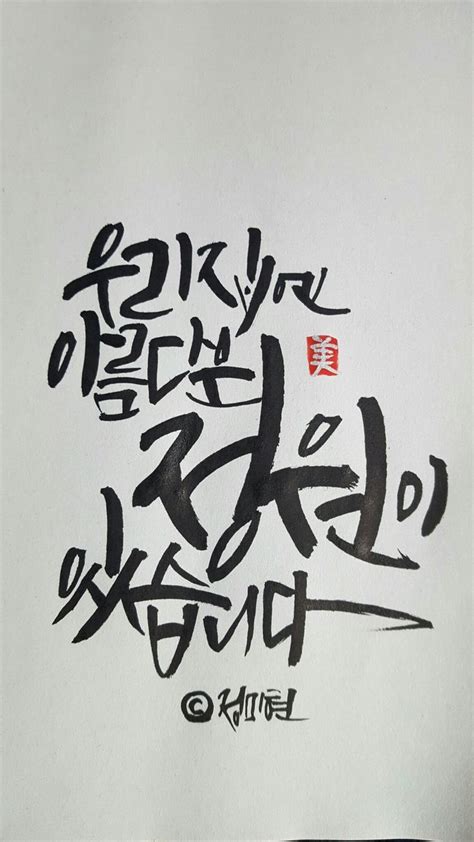 우리집엔
아름다운
美
정원이
있습니다
©정미현